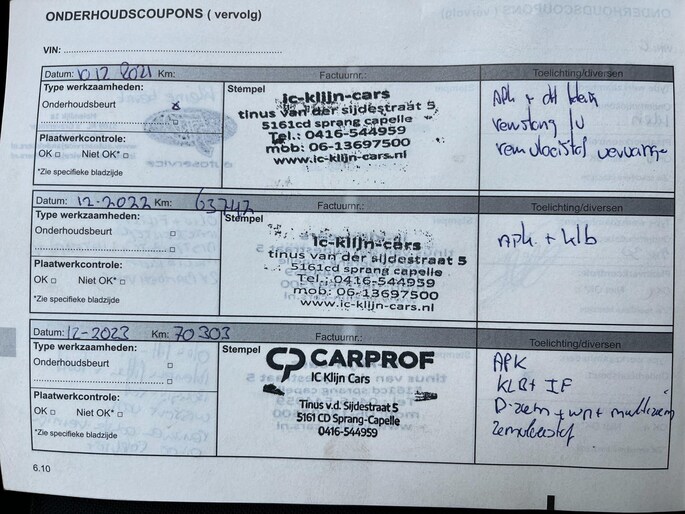 ONDERHOUDSCOUPONS ( vervolg)
VIN: ......................................................................
Datum: 10 12 2021 Km: Factuurnr.: Toelichting/diversen
Type werkzaamheden:
Onderhoudsbeurt x
Plaatwerkcontrole:
OK □ Niet OK* □
*Zie specifieke bladzijde
Stempel
ic-klijn-cars
tinus van der sijdestraat 5
5161cd sprang capelle
Tel.: 0416-544959
mob: 06-13697500
www.ic-klijn-cars.nl
APK +
remslang
remvloeistof vervangen
Datum: 12-2022 Km: 63742 Factuurnr.: Toelichting/diversen
Type werkzaamheden:
Onderhoudsbeurt □
Plaatwerkcontrole:
OK □ Niet OK* □
*Zie specifieke bladzijde
Stempel
ic-klijn-cars
tinus van der sijdestraat 5
5161cd sprang capelle
Tel.: 0416-544959
mob: 06-13697500
www.ic-klijn-cars.nl
APK + klb
Datum: 12-2023 Km: 70303 Factuurnr.: Toelichting/diversen
Type werkzaamheden:
Onderhoudsbeurt □
Plaatwerkcontrole:
OK □ Niet OK* □
*Zie specifieke bladzijde
Stempel
CARPROF
IC Klijn Cars
Tinus v.d. Sijdestraat 5
5161 CD Sprang-Capelle
0416-544959
APK
KLB+ IF
D-riem + wp + multiriem
Remvloeistof
6.10